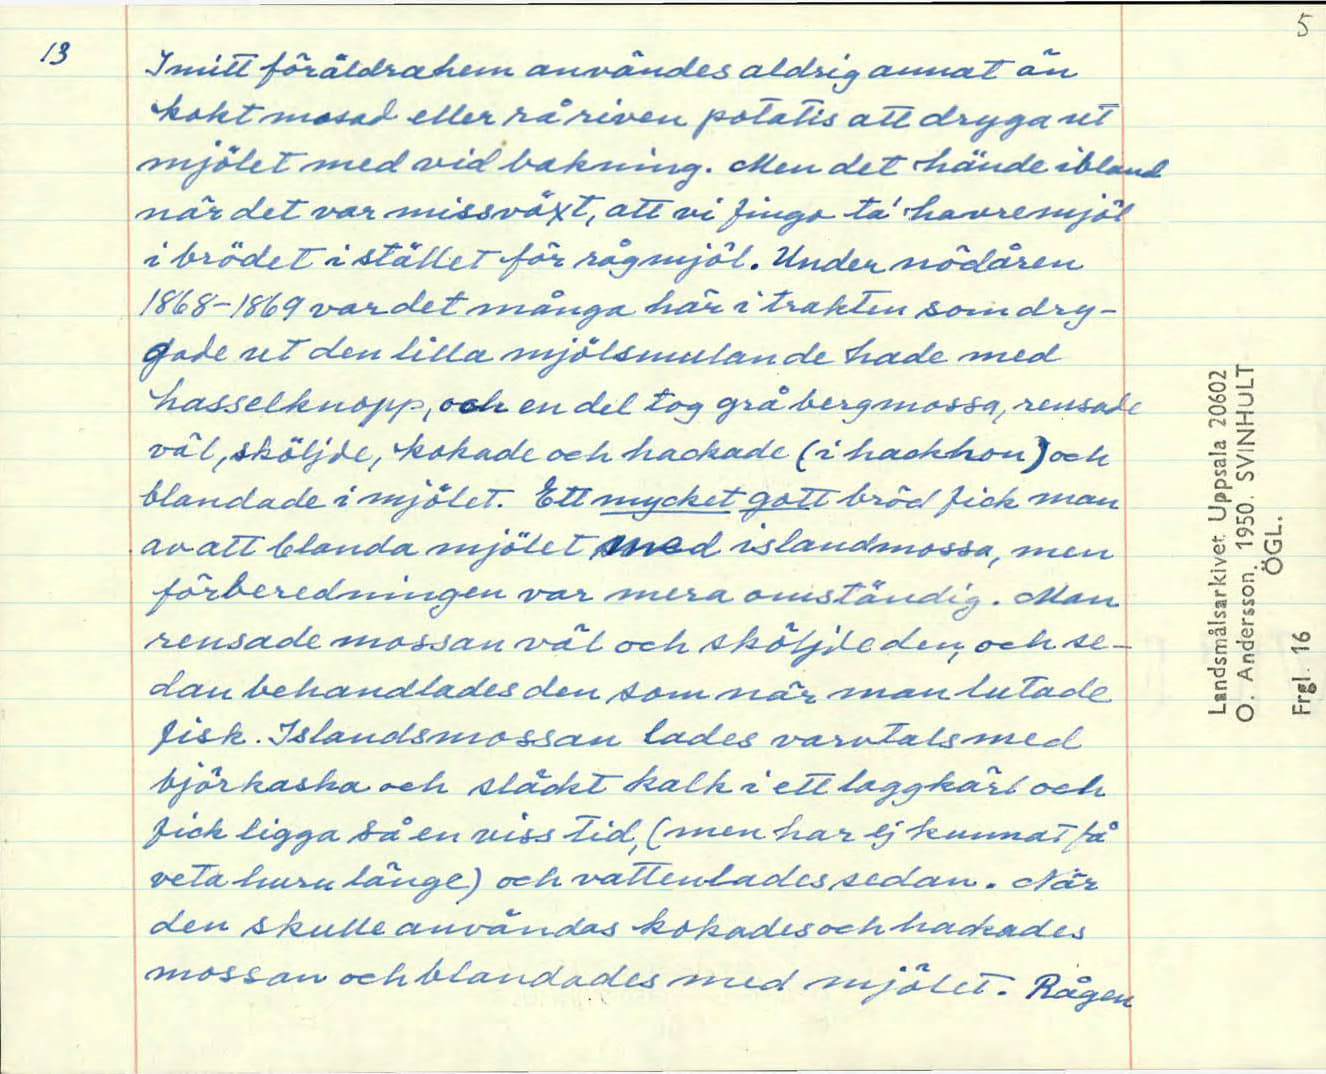 5
13
I mitt föräldrahem användes aldrig annat än
kokt mosad eller rå riven potatis att dryga ut
mjölet med vid bakning. Men det hände ibland
när det var missväxt, att vi fingo ta' havremjöl
i brödet i stället för rågmjöl. Under nödåren
1868-1869 var det många här i trakten som dry-
gade ut den lilla mjölsmulan de hade med
hasselknopp, och en del tog grå bergmossa, rensade
väl, sköljde, kokade och hackade (i hackhon) och
blandade i mjölet. Ett mycket gott bröd fick man
av att blanda mjölet med islandmossa, men
förberedningen var mera omständig. Man
rensade mossan väl och sköljde den, och se-
dan behandlades den som när man lutade
fisk. Islandsmossan lades varvtals med
björkaska och släckt kalk i ett laggkärl och
fick ligga så en viss tid, (men har ej kunnat få
veta huru länge) och vattenlades sedan. När
den skulle användas kokades och hackades
mossan och blandades med mjölet. Rågen
Landsmålsarkivet Uppsala 20602
O. Andersson. 1950. SVINHULT
ÖGL.
Frgl. 16